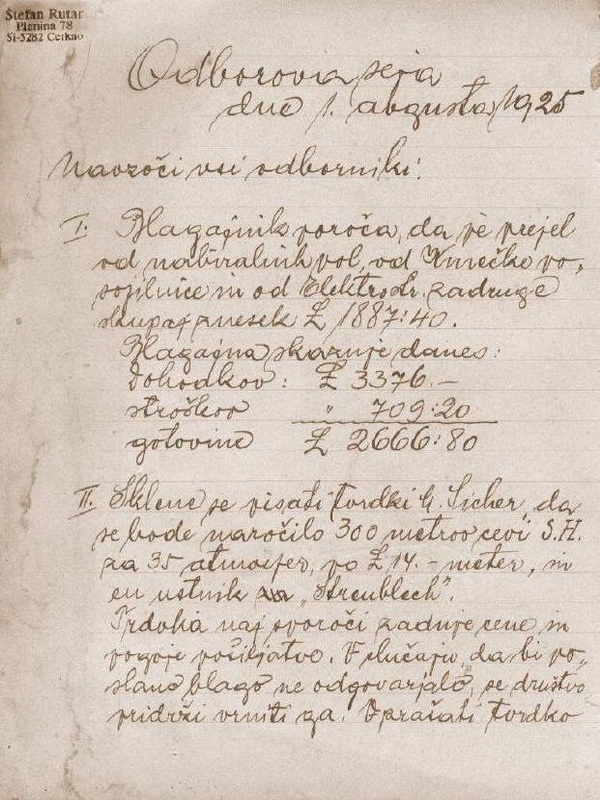 Štefan Rutar
Planina 78
SI-5282 Cerkno
Odborova seja
dne 1. avgusta 1925
Navzoči vsi odborniki:
I. Blagajnik poroča, da je prejel
od nabiralnih pol, od Kmečke po-
sojilnice in od Elektrostr. zadruge
skupaj znesek £ 1887:40.
Blagajna skazuje danes:
Dohodkov: £ 3376.—
stroškov " 709:20
gotovine £ 2666:80
II. Sklene se pisati tvrdki G. Sicher, da
se bode naročilo 300 metrov cevi S.H.
za 35 atmosfer, po £ 14.- meter, in
en ustnik za „Streublech".
Tvrdka naj sporoči zadnje cene in
pogoje pošiljatve. V slučaju, da bi po-
slano blago ne odgovarjalo, se društvo
pridrži vrniti ga. Vprašati tvrdko